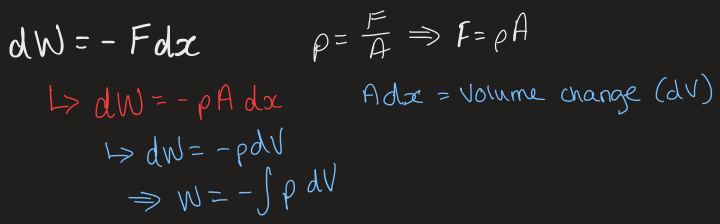 dW = - Fdx
p = F/A ⇒ F = pA
↳ dW = - pA dx
Adx = Volume change (dV)
↳ dW = - pdV
⇒ W = - ∫ p dV